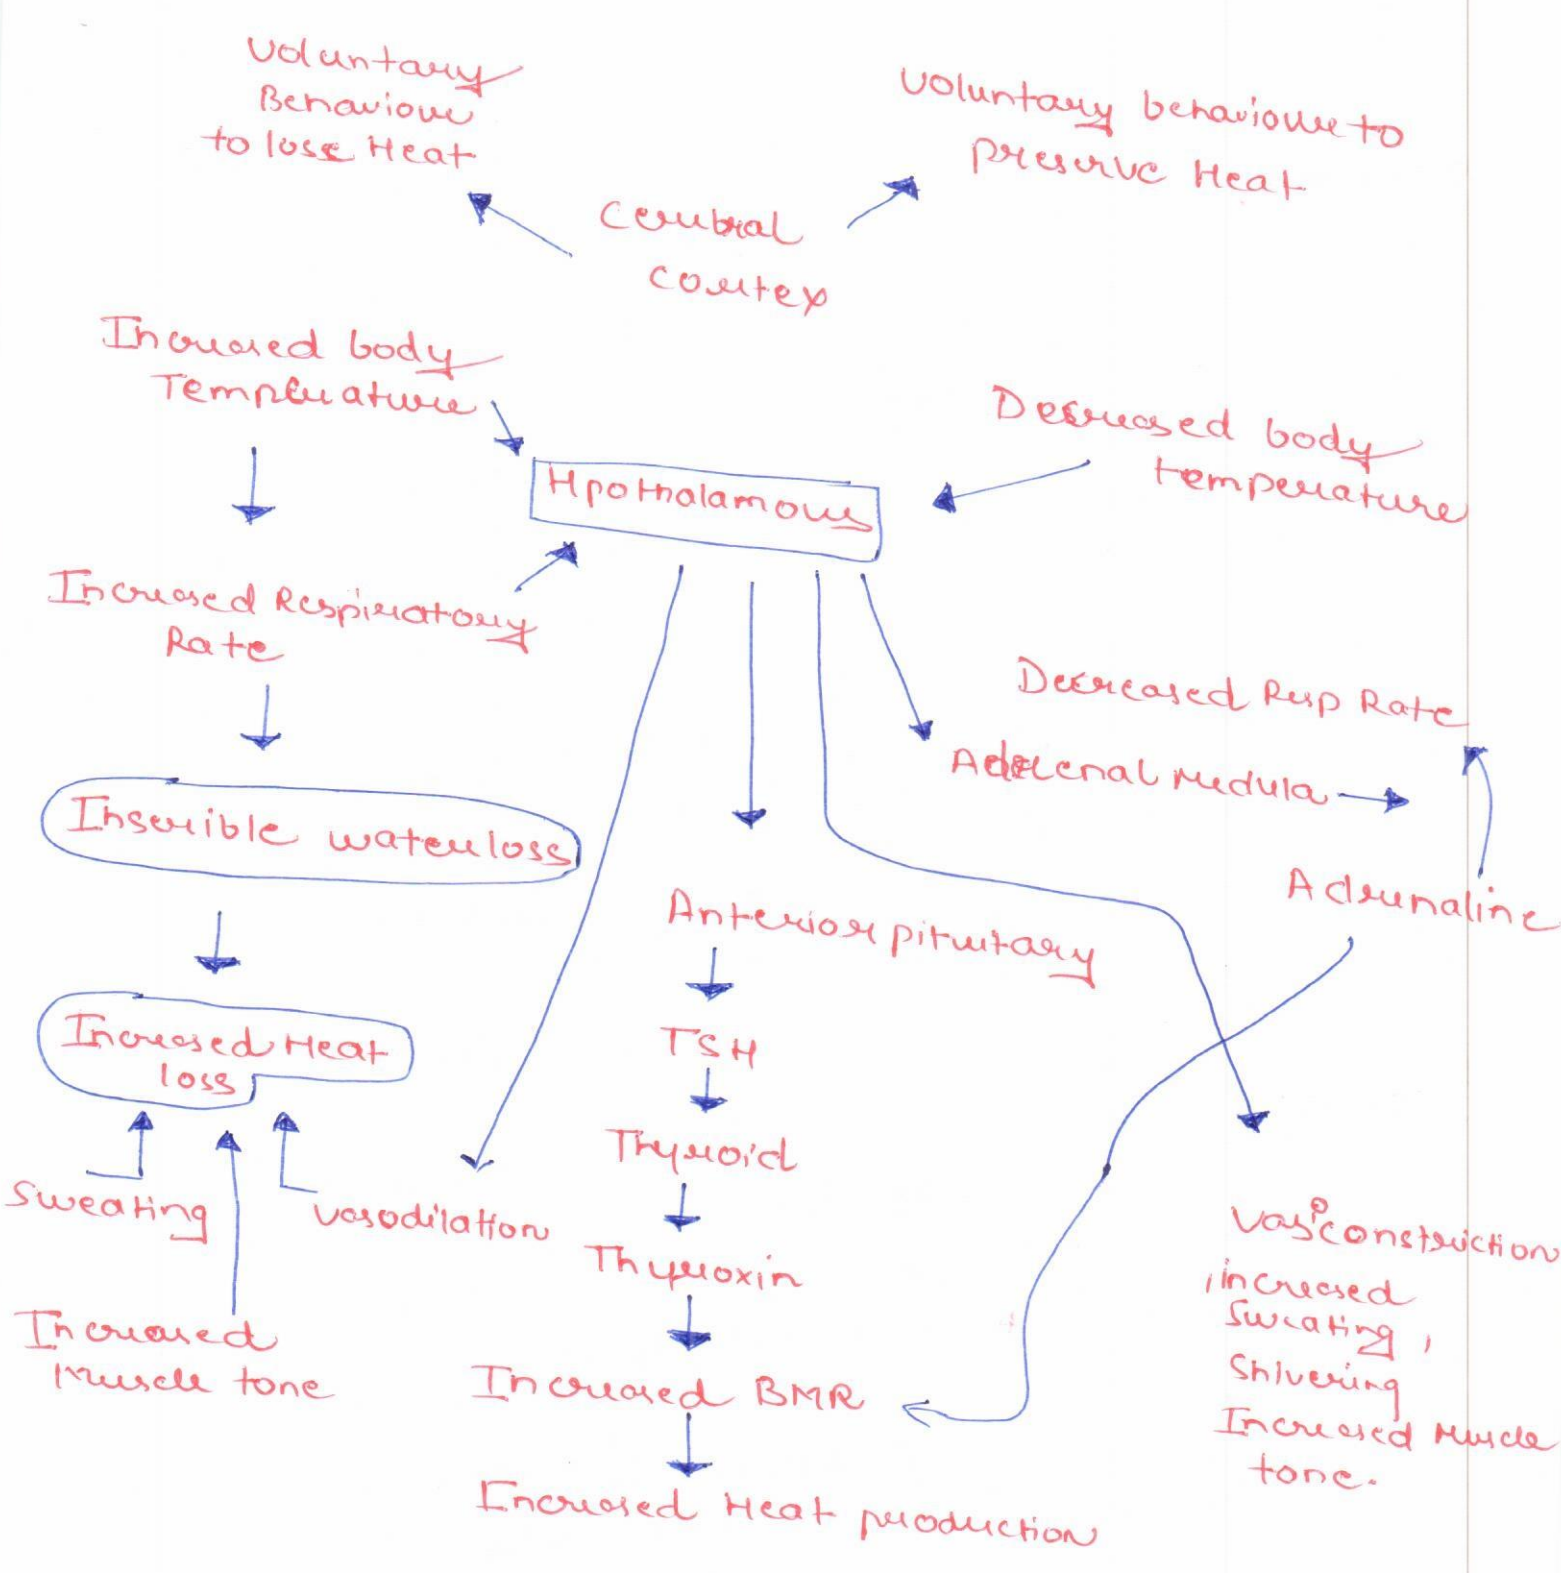 Voluntary
Behaviour
to lose Heat
Voluntary behaviour to
preserve Heat
Cerebral
cortex
Increased body
Temperature
Decreased body
temperature
Hpothalamous
Increased Respiratory
Rate
Decreased Resp Rate
Adrenal medula
Insenible water loss
Adrenaline
Anterior pituitary
Increased Heat
loss
TSH
Thyroid
Sweating
vasodilation
Thyroxin
Vasoconstriction
, increased
Sweating,
Shivering
Increased Muscle
tone.
Increased
Muscle tone
Increased BMR
Increased Heat production